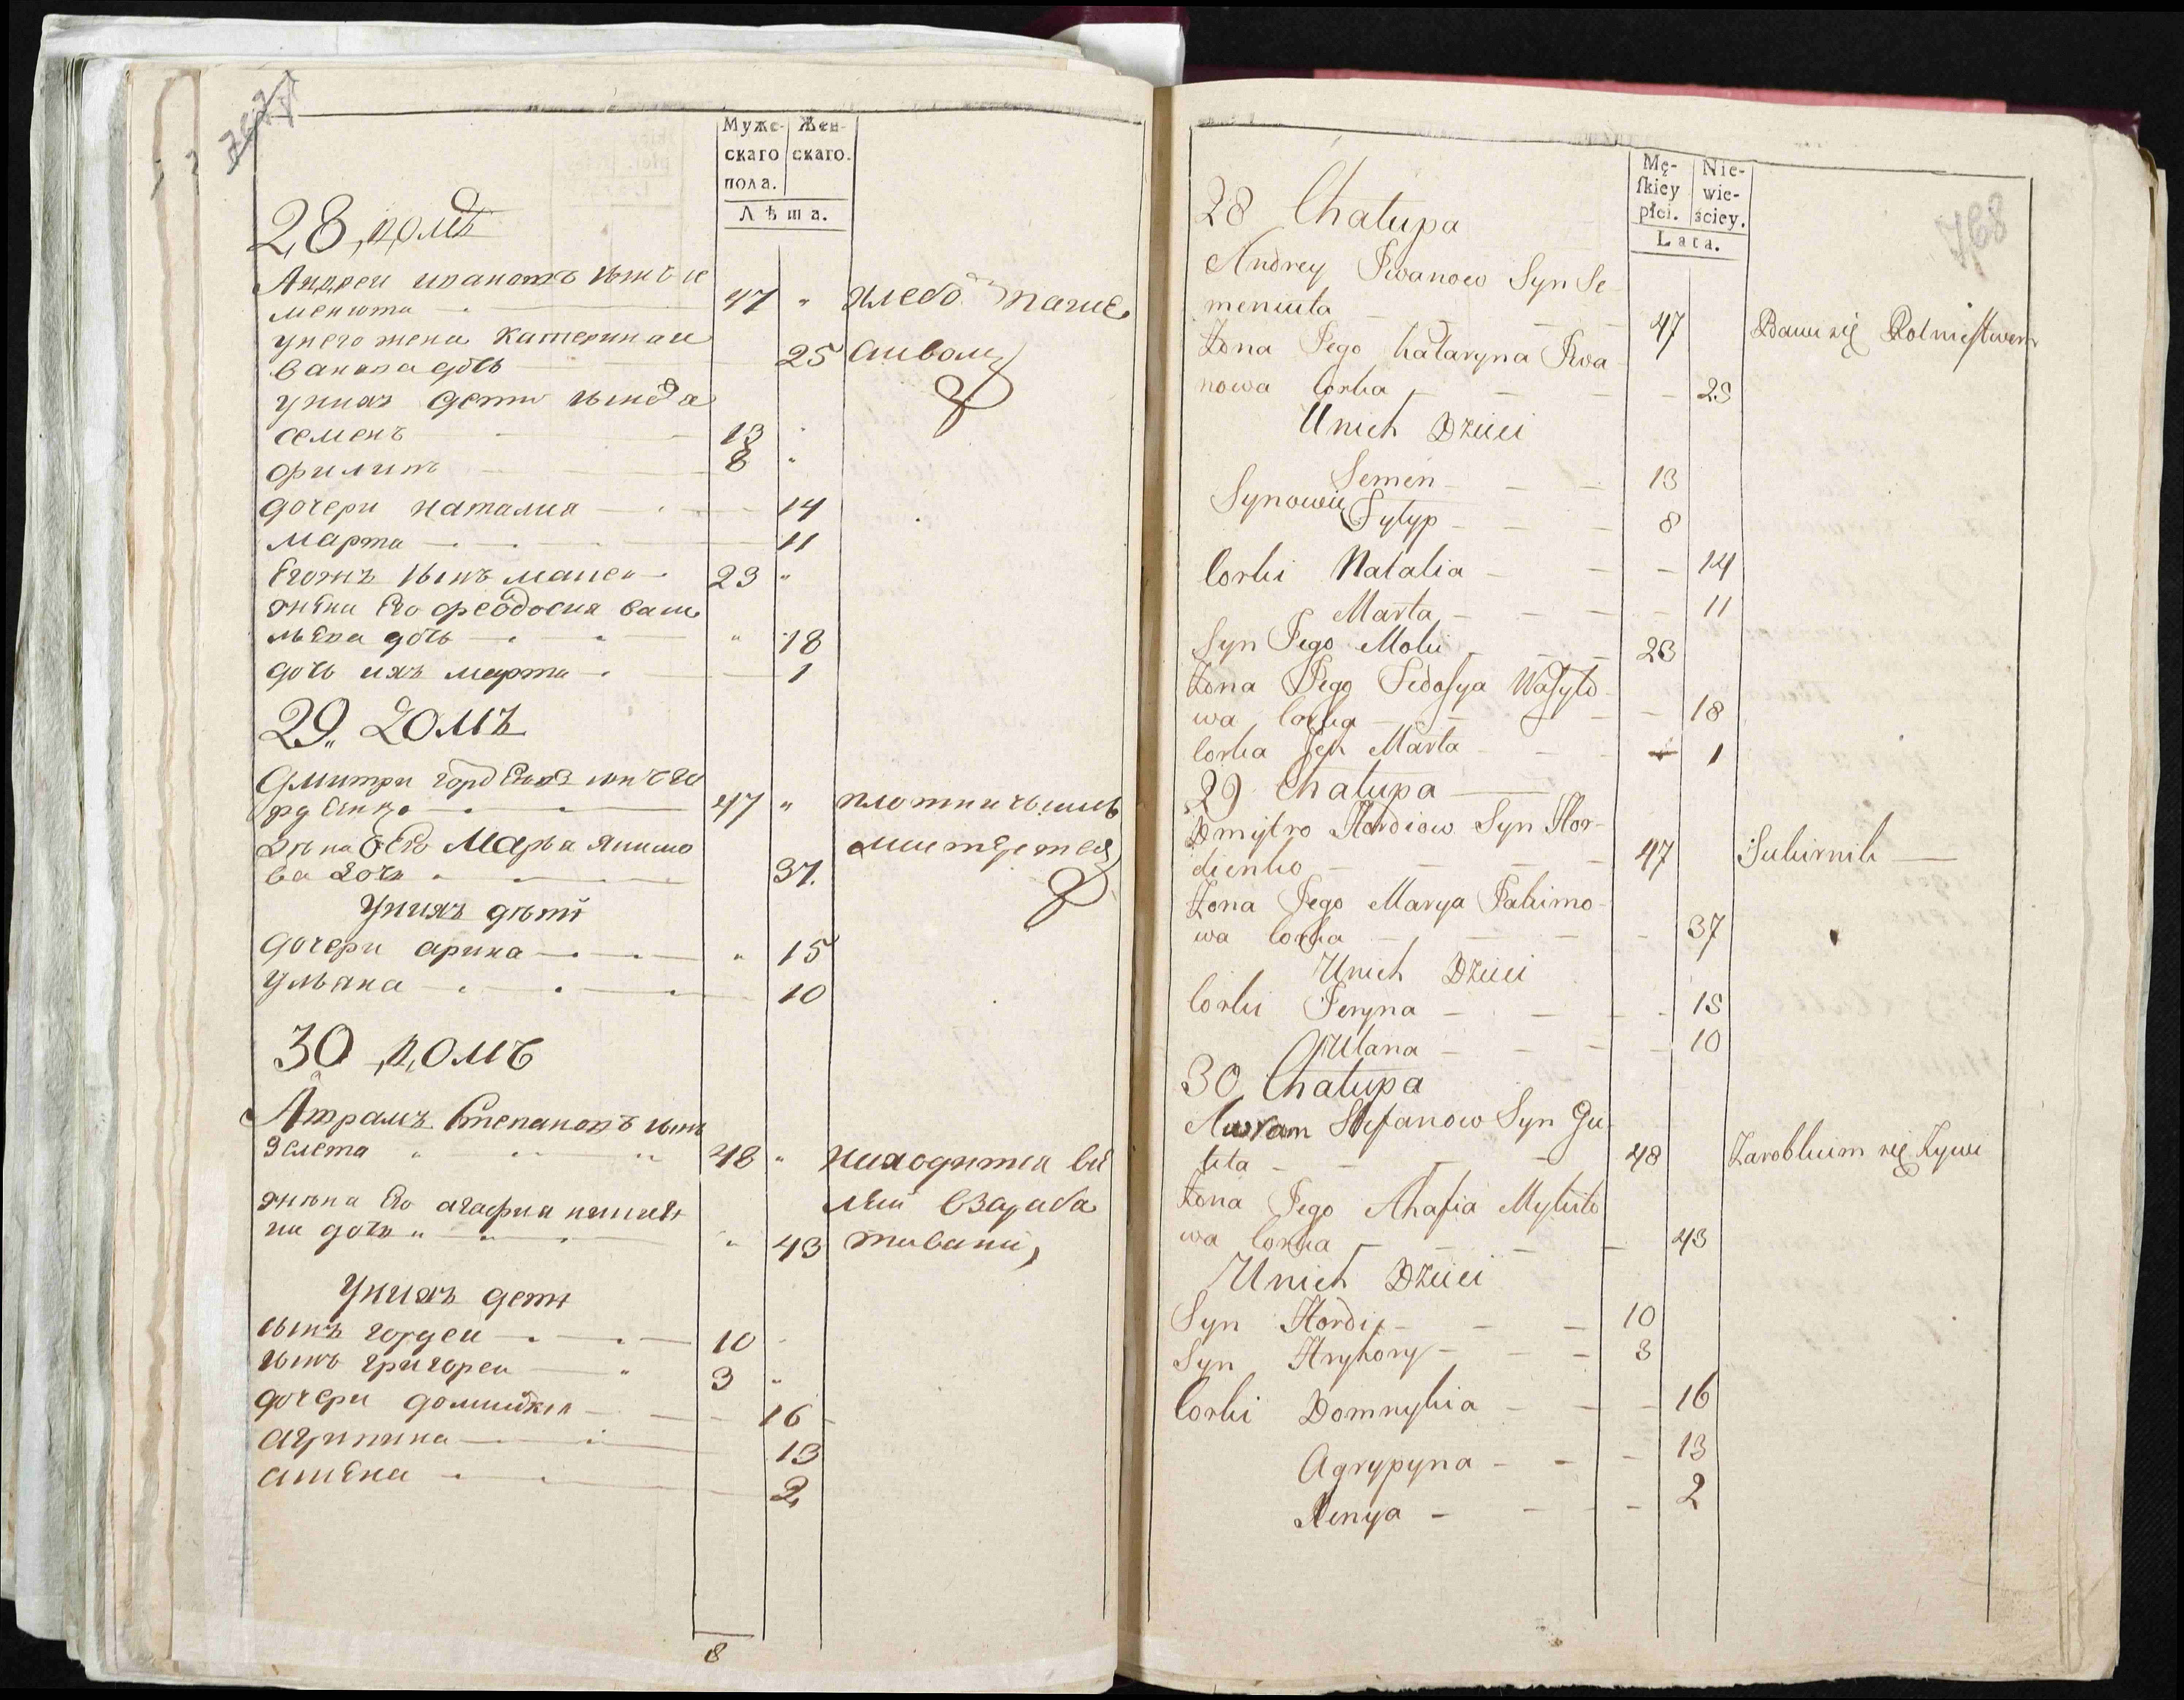 Муже- Жен-
скаго скаго.
пола.
Лѣта.
28 домъ
Андреи ивановъ сынъ се
менюта 47 " хлебо паше
унего жена Катерина и
ванова дочь 25
уних дети сынова
семенъ 13 "
филипъ 8 "
дочери наталия 14
марта 11
Егожъ сынъ 23 "
жена Его феодосия васи
льева дочь " 18
дочь ихъ марта 1
29 домъ
Дмитри гордеевъ сынъ го
рдеенко 47 "
жена Его Марья якимо
ва дочь 37.
Уних дѣти
дочери арина " 15
ульяна 10
30 домъ
Аврамъ Степановъ сынъ
48 " находится
жена Его агафия
на дочь " " 43
Уних дети
сынъ гордеи 10
сынъ григореи 3 "
дочери домникия 16
агрипина 13
2
8
Mę- Nie-
ſkiey wie-
płci. ściey.
Lata.
798
28 Chatupa
Andrey Iwanow Syn Se
meniuta 47 Bawi się Rolniſtwem
Żona Jego Kataryna Iwa
nowa Corka 25
Unich Dzieci
Semen 13
Synowie Fylyp 8
Corki Natalia 14
Marta 11
Syn Jego 23
Żona Jego Fedoſya Waſylo
wa Corka 18
Corka Jch Marta 1
29 Chatupa
Dmytro Hordiow Syn Hor-
dienko 47
Żona Jego Marya Jakimo-
wa Corka 37
Unich Dzieci
Corki Jeryna 15
Ulana 10
30 Chatupa
Awram Stefanow Syn Gu
lita 48 Zarobkiem się Żywi
Żona Jego Ahafia Mykito
wa Corka 43
Unich Dzieci
Syn Hordi 10
Syn Hryhory 3
Corki Domnykia 16
Agrypyna 13
Xenya 2